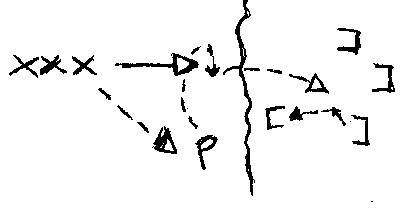 xxx
P